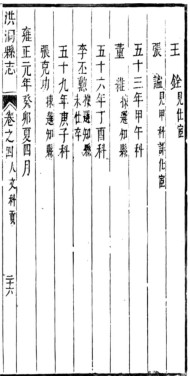 王銓見仕宦
張謐見甲科詳仕宦
五十三年甲午科
董維揀選知縣
五十六年丁酉科
李丕勷揀選知縣未仕卒
五十九年庚子科
張克功揀選知縣
雍正元年癸卯夏四月
洪洞縣志
卷之四人文科貢
二十六